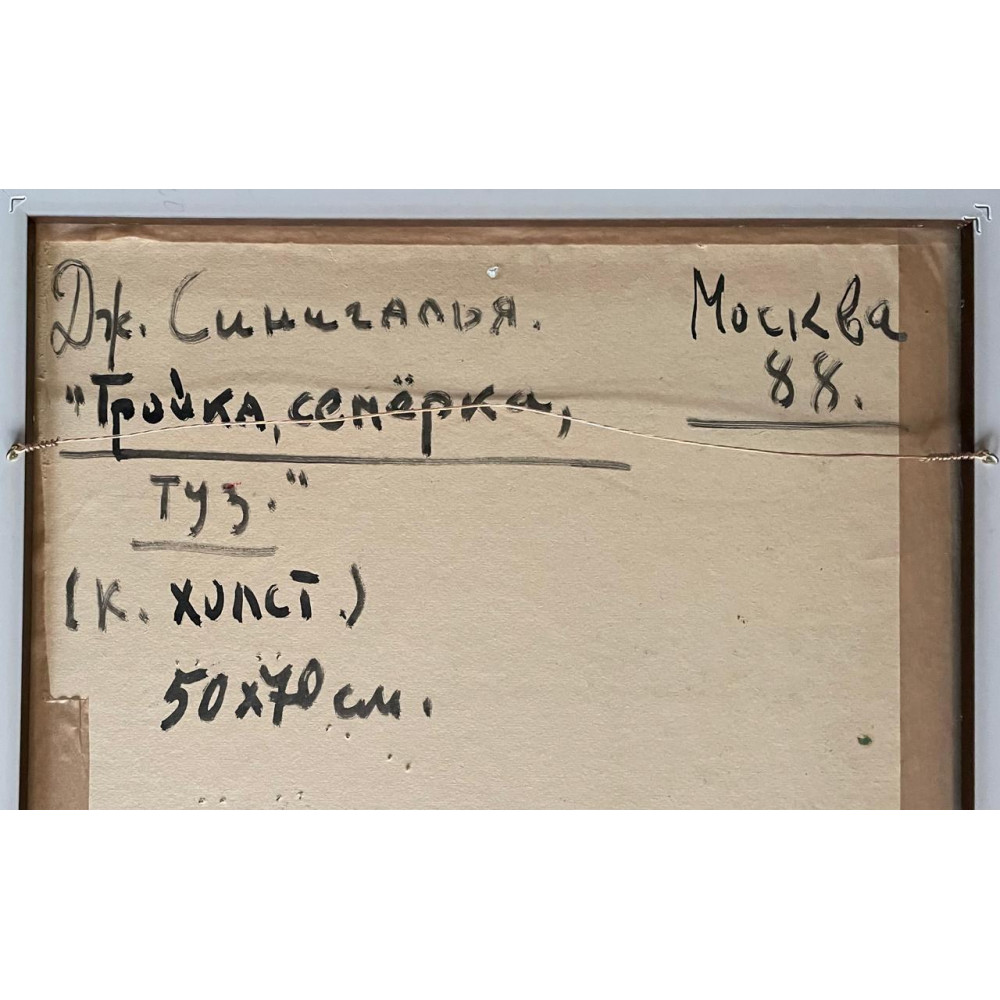 Дж. Синигалья.
"Тройка, семёрка,
туз."
(к. холст.)
50х70 см.
Москва
88.